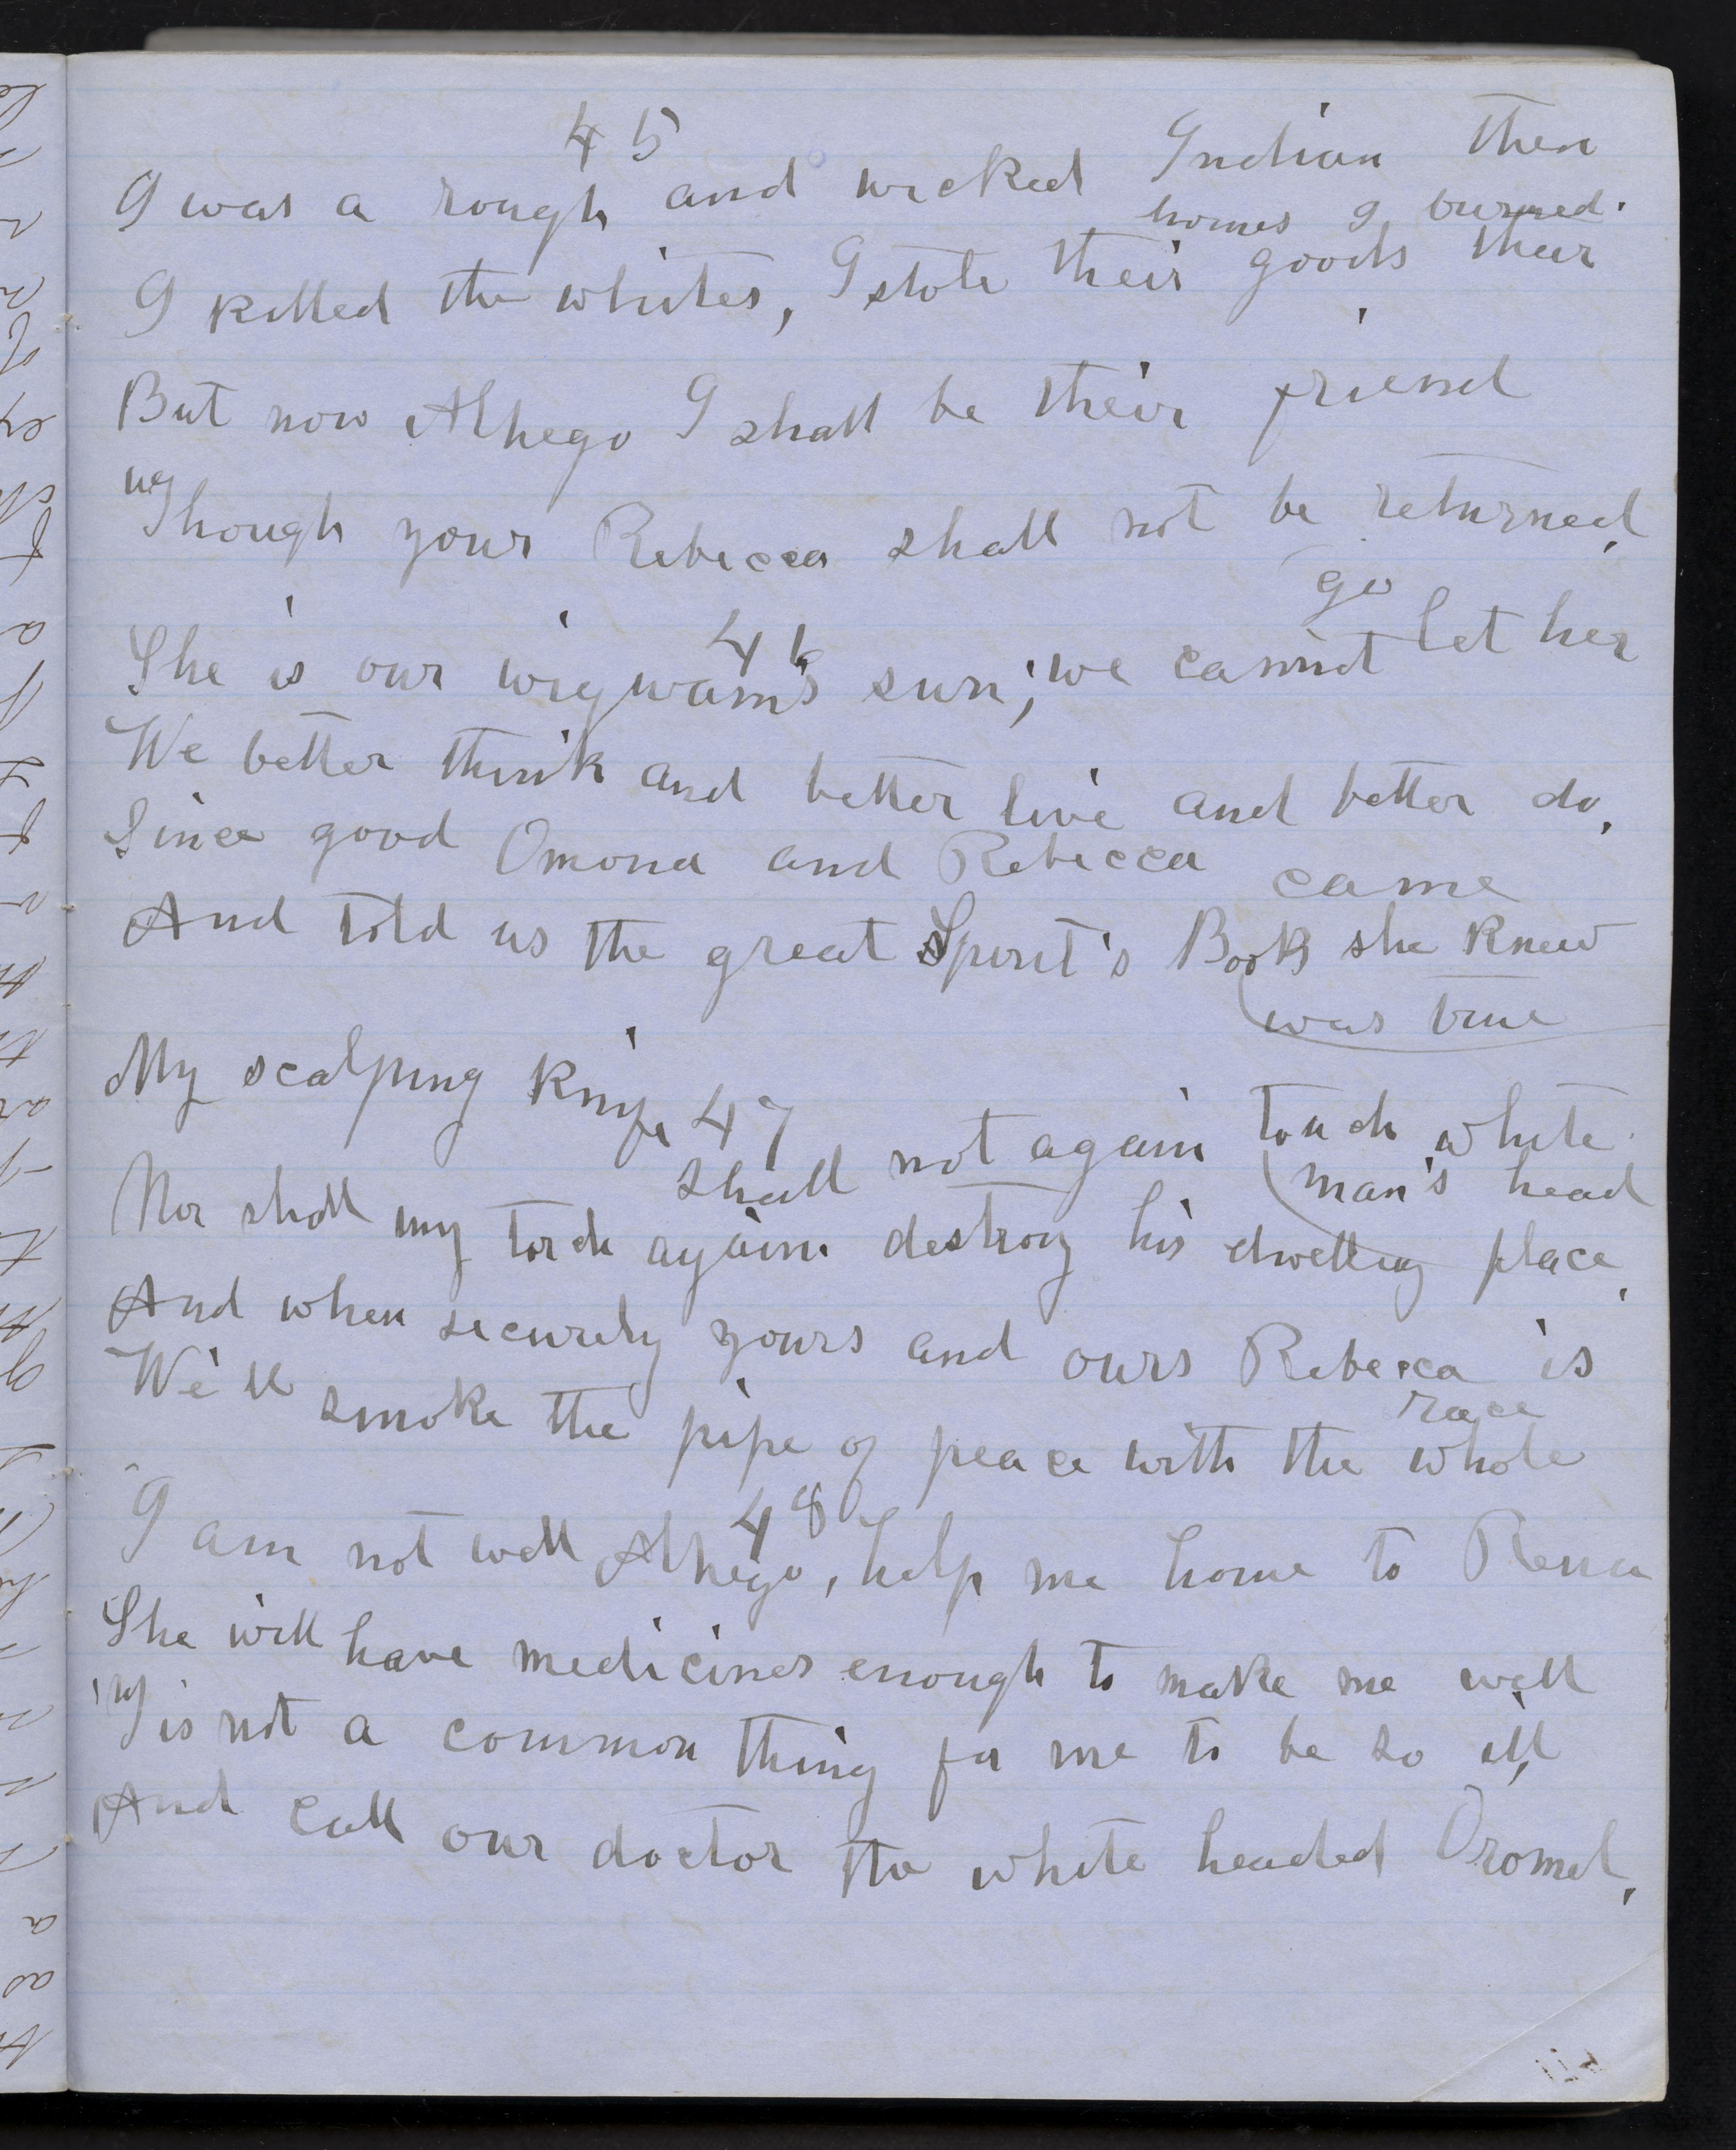 45
I was a rough and wicked Indian then
I killed the whites, I stole their goods, their
homes I burned.
But now Alhego I shall be their friend
Though your Rebecca shall not be returned,
46
She is our wigwam's sun; we cannot let her
go
We better think and better live and better do,
Since good Omona and Rebecca came
And told us the great Spirit's Book she knew
was true
47
My scalping knife shall not again touch white
man's head
Nor shall my torch again destroy his dwelling place,
And when securely yours and ours Rebecca is
We'll smoke the pipe of peace with the whole
race
48
"I am not well Alhego, help me home to Rena
She will have medicines enough to make me well
'Tis not a common thing for me to be so ill,
And call our doctor the white headed Oromel,